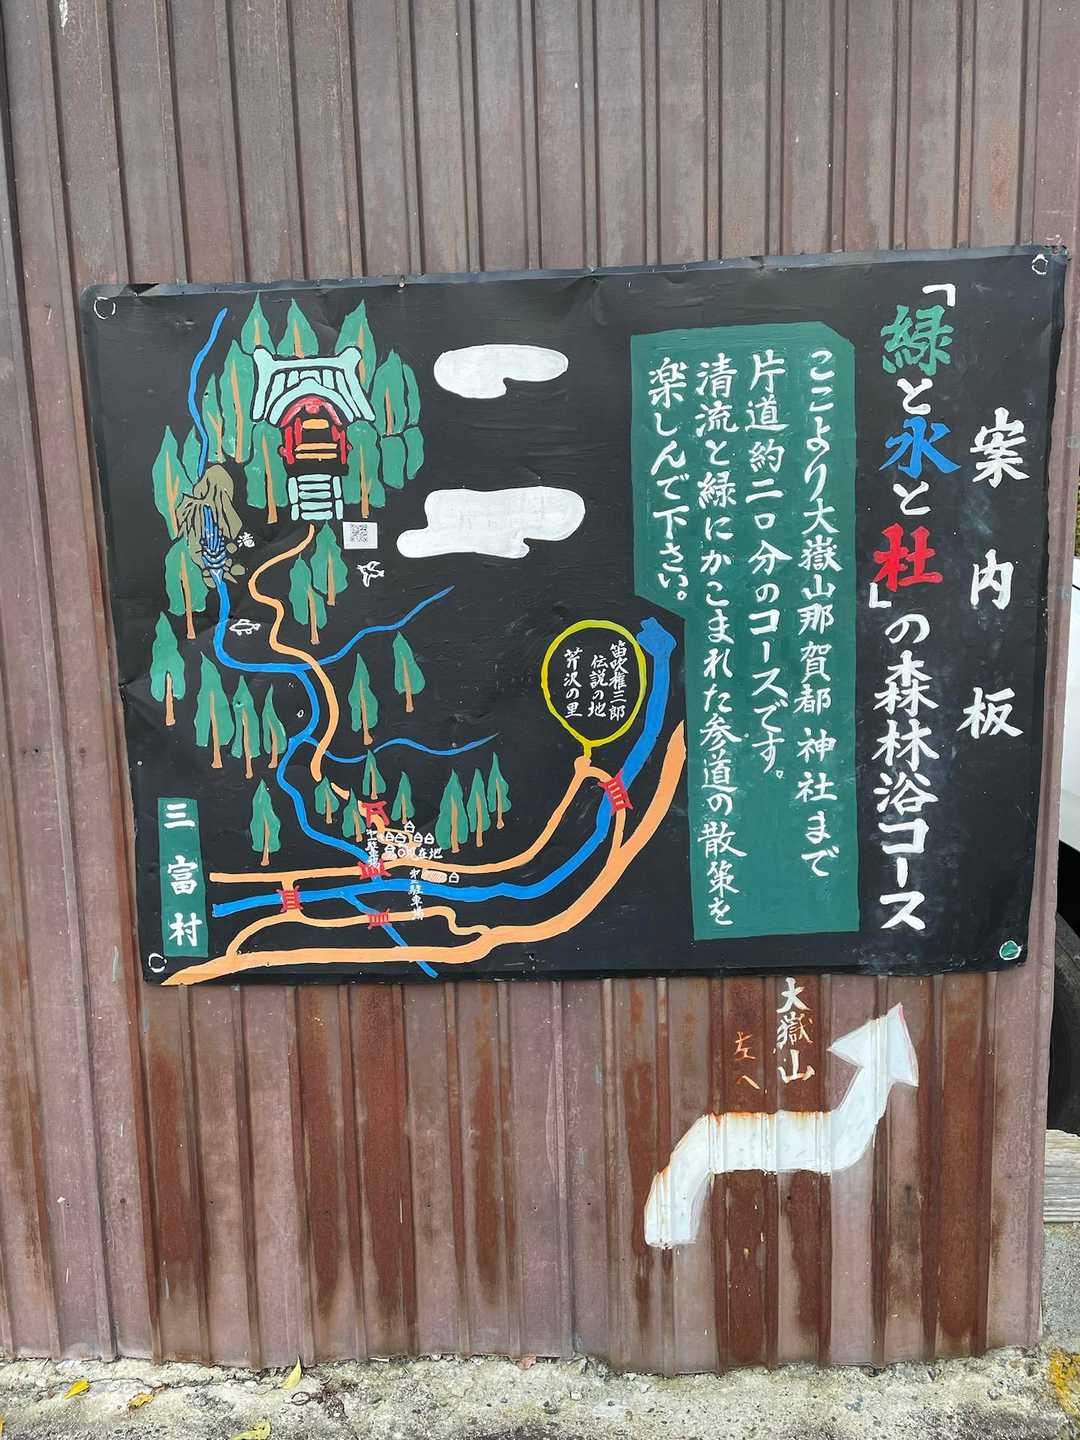 案内板
「緑と水と杜」の森林浴コース
ここより大嶽山那賀都神社まで
片道約二〇分のコースです。
清流と緑にかこまれた参道の散策を
楽しんで下さい。
笛吹権三郎
伝説の地
芹沢の里
滝
第一駐車場
現在地
第二駐車場
三富村
大嶽山
左へ